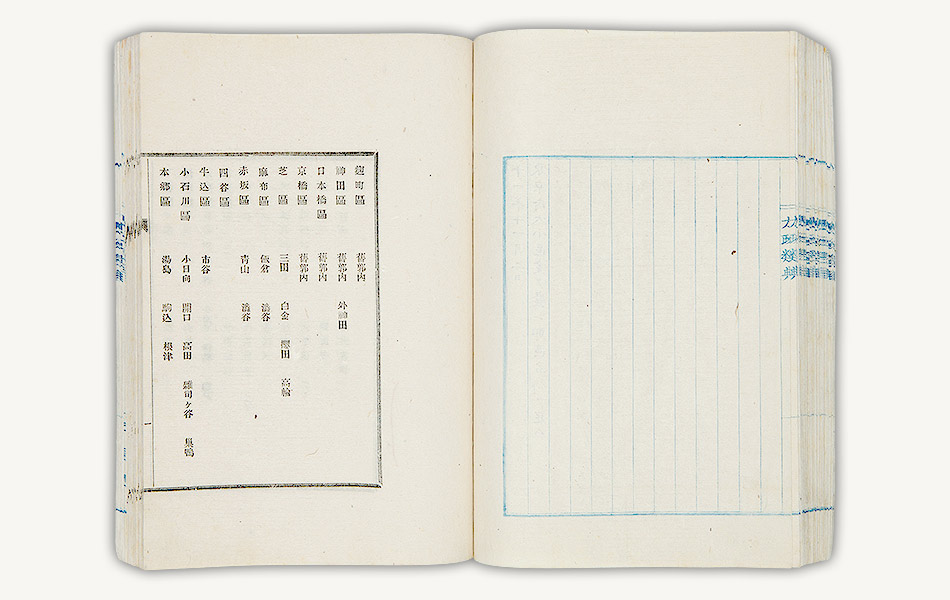 太政類典
麹町區 舊郭内
神田區 舊郭内 外神田
日本橋區 舊郭内
京橋區 舊郭内
芝區 三田 白金 高輪
麻布區 飯倉 澁谷
赤坂區 青山 澁谷
四谷區
牛込區 市谷
小石川區 小日向 關口 高田 雜司ヶ谷 巣鴨
本郷區 湯島 駒込 根津